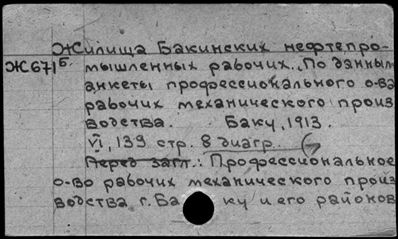 Жилища Бакинских нефтепро-
Ж671б. мышленных рабочих. По данным
анкеты профессионального о-ва
рабочих механического произ
водства. Баку, 1913.
VI, 139 стр. 8 диагр.
Перед загл.: Профессиональное
о-во рабочих механических произ
водства г. Баку и его районов